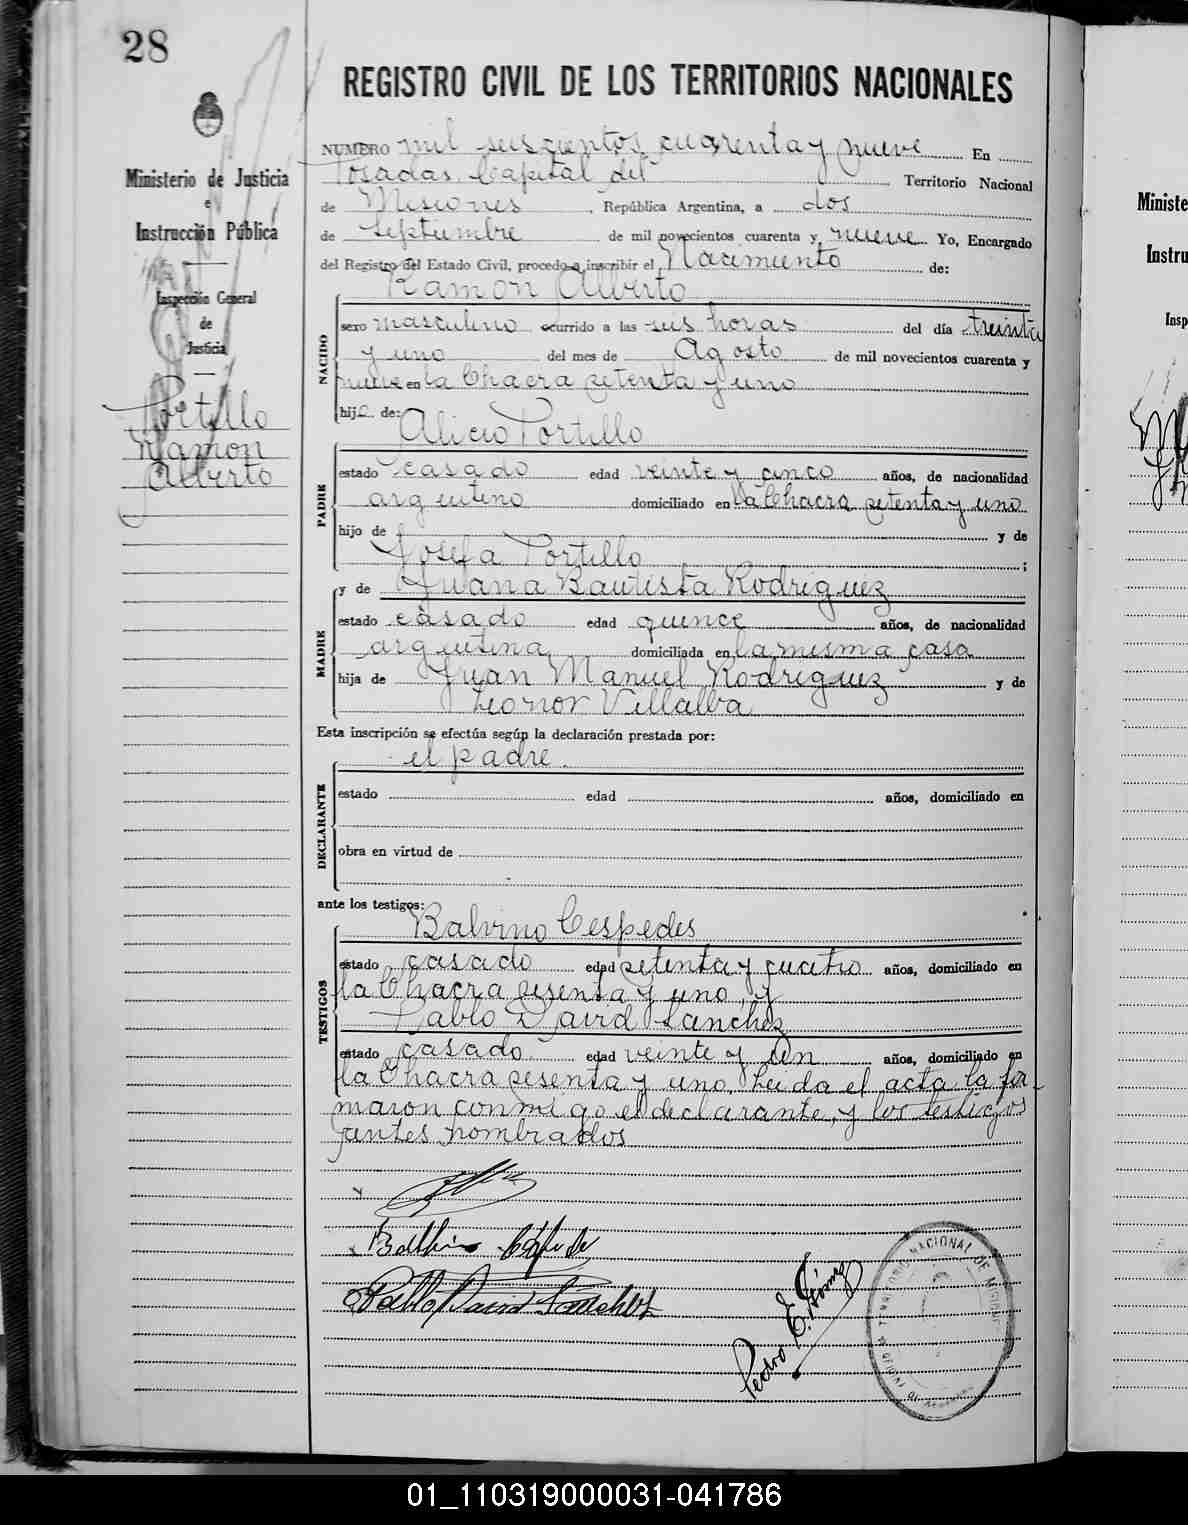 28
REGISTRO CIVIL DE LOS TERRITORIOS NACIONALES
Ministerio de Justicia
e
Instrucción Pública
Inspección General
de
Justicia
Portillo
Ramon
Alberto
NUMERO mil seiscientos cuarenta y nueve En
Posadas, Capital del Territorio Nacional
de Misiones, República Argentina, a dos
de septiembre de mil novecientos cuarenta y nueve Yo, Encargado
del Registro del Estado Civil, procedo a inscribir el Nacimiento de:
Ramon Alberto
NACIDO
sexo masculino ocurrido a las seis horas del día treinta
y uno del mes de Agosto de mil novecientos cuarenta y
nueve en la Chacra setenta y uno
hijo de:
Alicio Portillo
PADRE
estado casado edad veinte y cinco años, de nacionalidad
argentino domiciliado en la Chacra setenta y uno
hijo de y de
Josefa Portillo ;
y de Juana Bautista Rodriguez
MADRE
estado casado edad quince años, de nacionalidad
argentina domiciliada en la misma casa
hija de Juan Manuel Rodriguez y de
Leonor Villalba
Esta inscripción se efectúa según la declaración prestada por:
el padre.
DECLARANTE
estado edad años, domiciliado en
obra en virtud de
ante los testigos:
Balvino Cespedes
TESTIGOS
estado casado edad setenta y cuatro años, domiciliado en
la Chacra sesenta y uno, y
Pablo David Sanchez
estado casado edad veinte y un años, domiciliado en
la Chacra sesenta y uno. Leida el acta la fir-
maron conmigo el declarante, y los testigos
antes nombrados
Pablo David Sanchez
Pedro E. Gómez
TERRITORIO NACIONAL DE MISIONES
Ministe
Instru
Insp
01_110319000031-041786